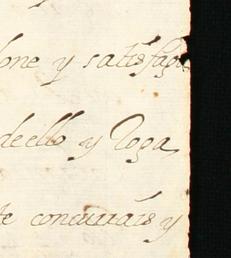 one y satisfaga
de ello y Toga
te concurrais y